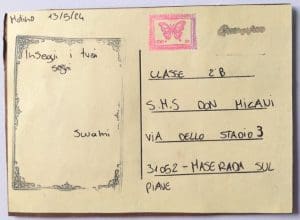 13/5/24
Insegui i tuoi
sogni
Swami
CLASSE 2°B
S.M.S DON MILANI
VIA DELLO STADIO 3
31052 - MASERADA SUL
PIAVE